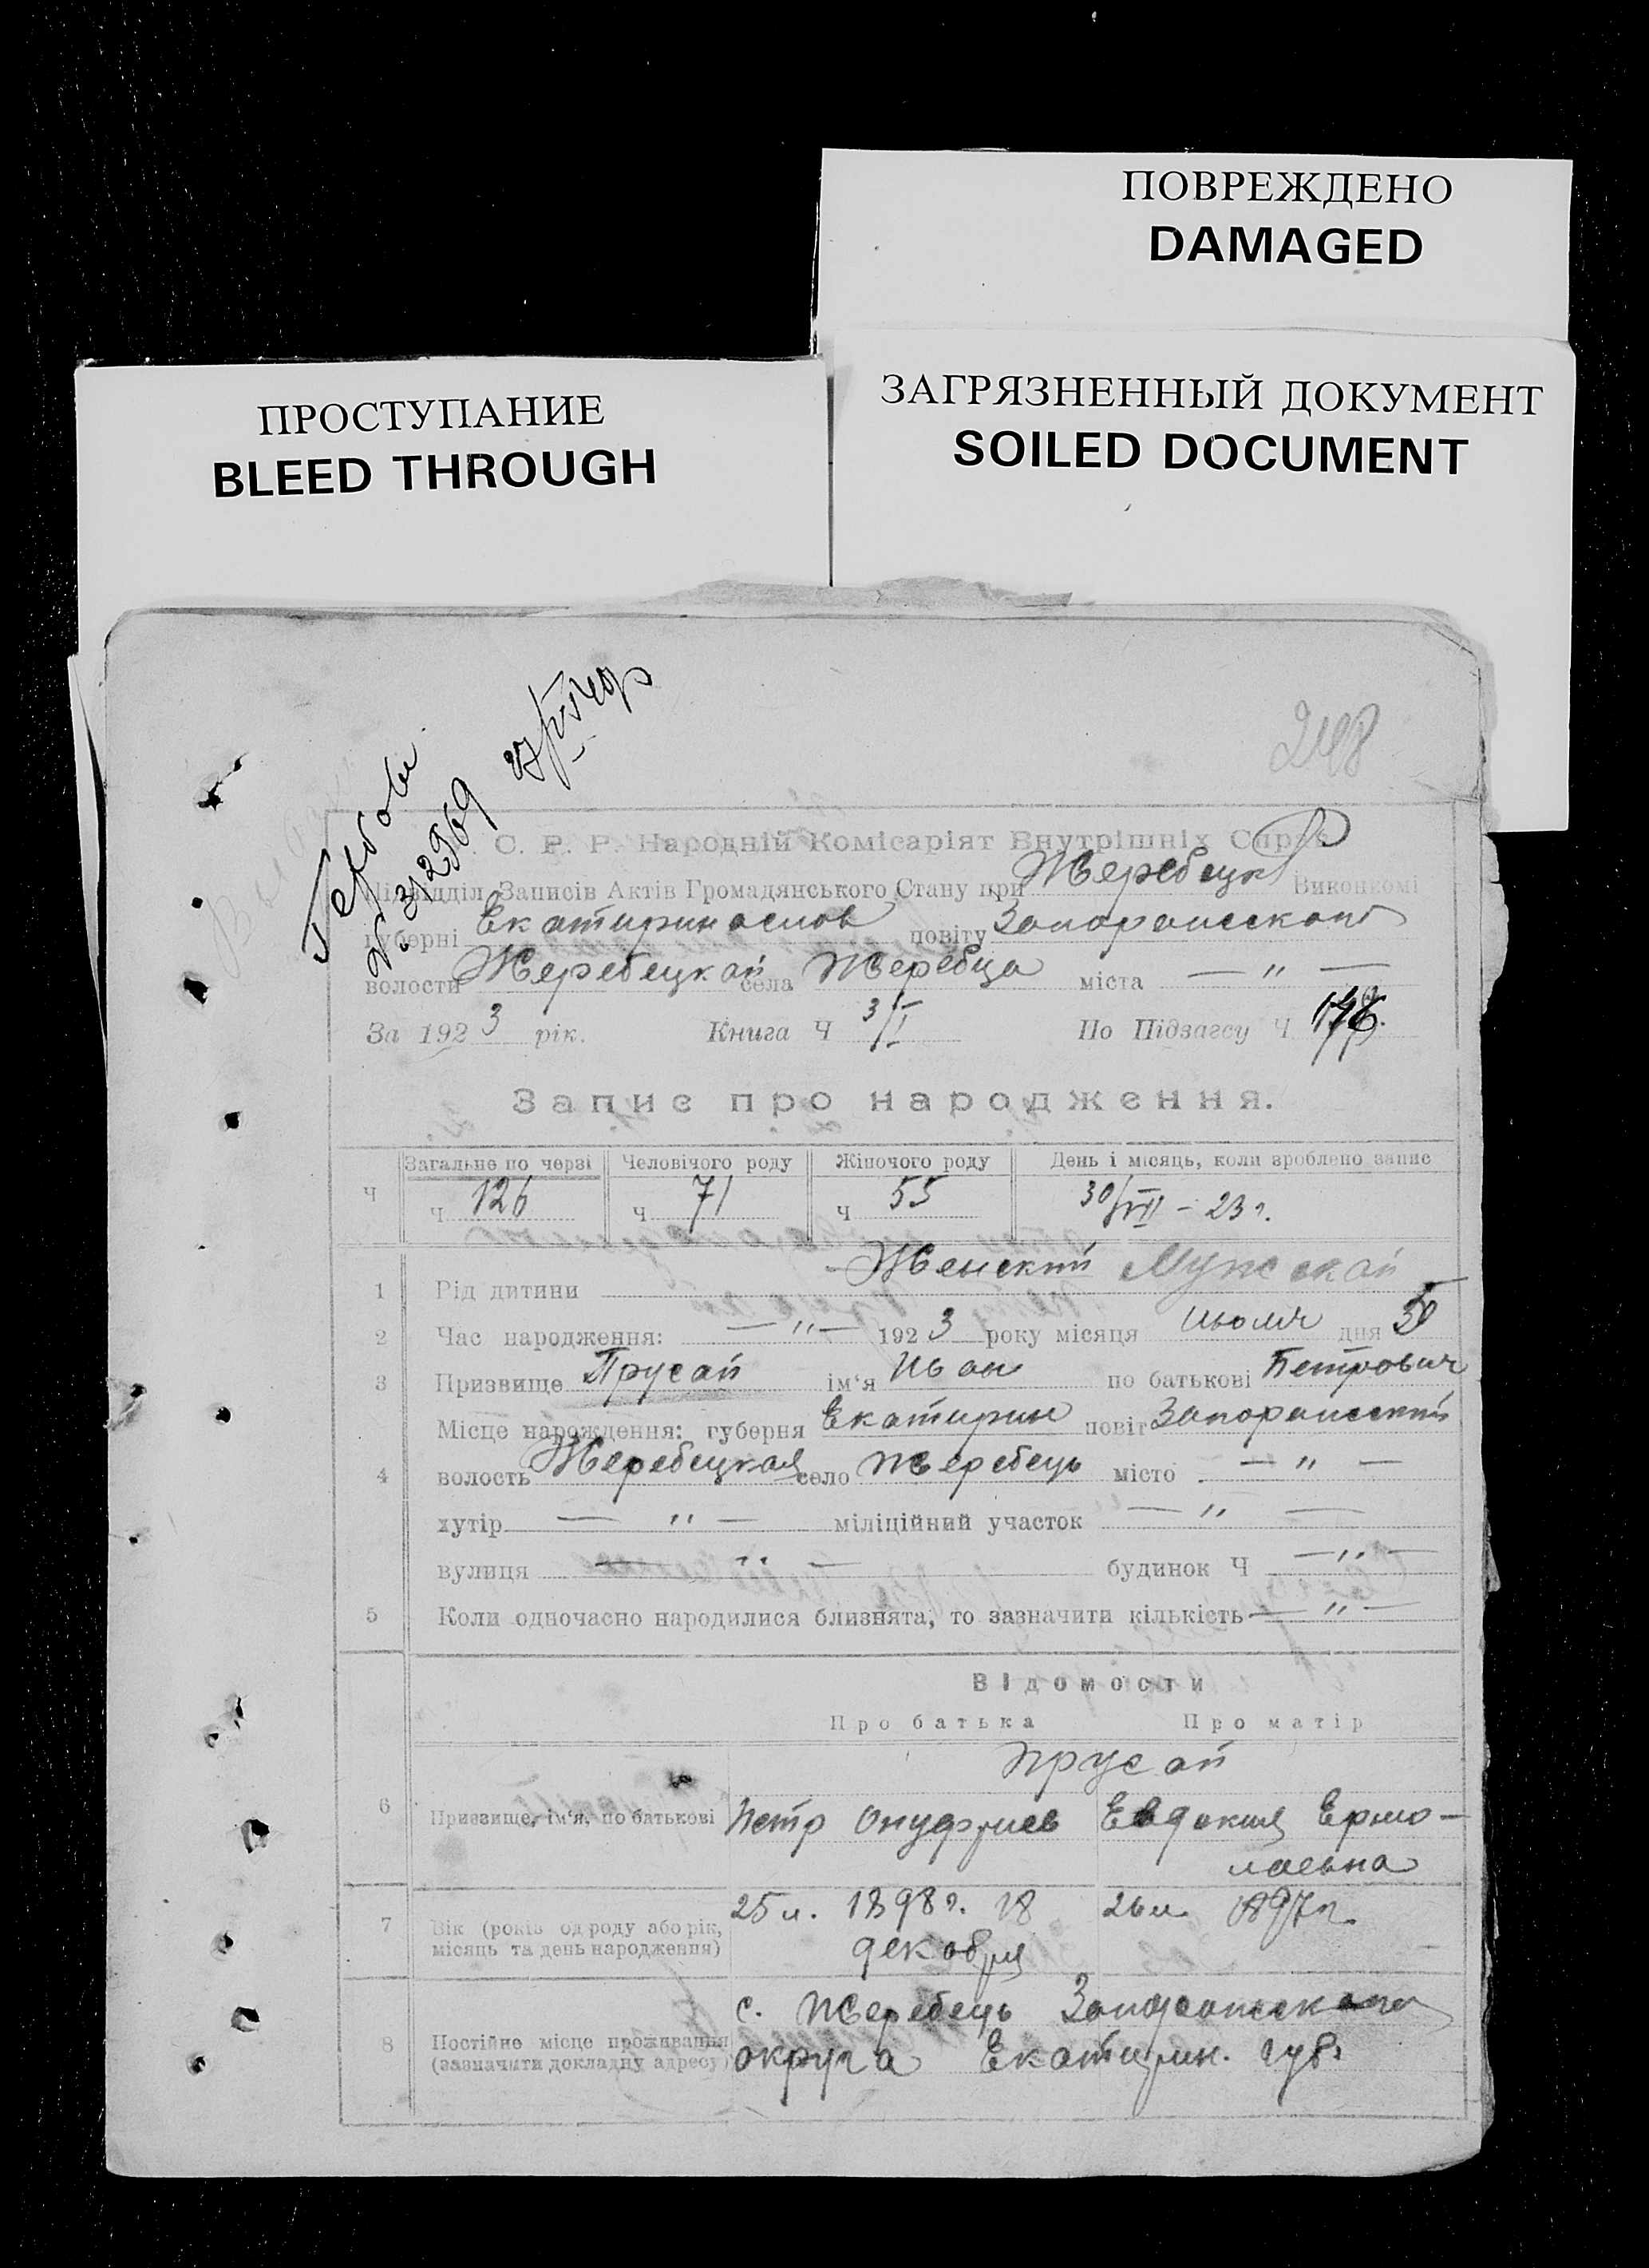 ПОВРЕЖДЕНО
DAMAGED
ПРОСТУПАНИЕ
BLEED THROUGH
ЗАГРЯЗНЕННЫЙ ДОКУМЕНТ
SOILED DOCUMENT
248
Гербовы
№ 312969
С. Р. Р. Народній Комісаріят Внутрішніх Справ
Підвідділ Записів Актів Громадянського Стану при Жеребецк Виконкомі
губерні Екатиринослов повіту Запорожского
волости Жеребецкой села Жеребца міста — " —
За 1923 рік. Книга Ч 3/I По Підзагсу Ч
Запис про народження.
Загальне по черзі Человічого роду Жіночого роду День і місяць, коли зроблено запис
Ч Ч 126 Ч 71 Ч 55 30/VII – 23 г.
1 Рід дитини Женский Мужской
2 Час народження: — " — 1923 року місяця июля дня
3 Призвище Прусай ім'я Иван по батькові Петрович
4 Місце народження: губерня Екатирин повіт Запорожский
волость Жеребецкая село Жеребець місто — " —
хутір — " — міліційний участок — " —
вулиця — " — будинок Ч — " —
5 Коли одночасно народилися близнята, то зазначити кількість — " —
Відомости
Про батька Про матір
Прусай
6 Призвище, ім'я, по батькові Петр Онуфриев Евдокия Ермо-
лаевна
7 Вік (років од роду або рік, місяць та день народження) 25 л. 1898 г. 18 26 л. 1897 г.
декабря
8 Постійне місце проживання (зазначити докладну адресу) с. Жеребець Запорожского
округа Екатирин. губ.